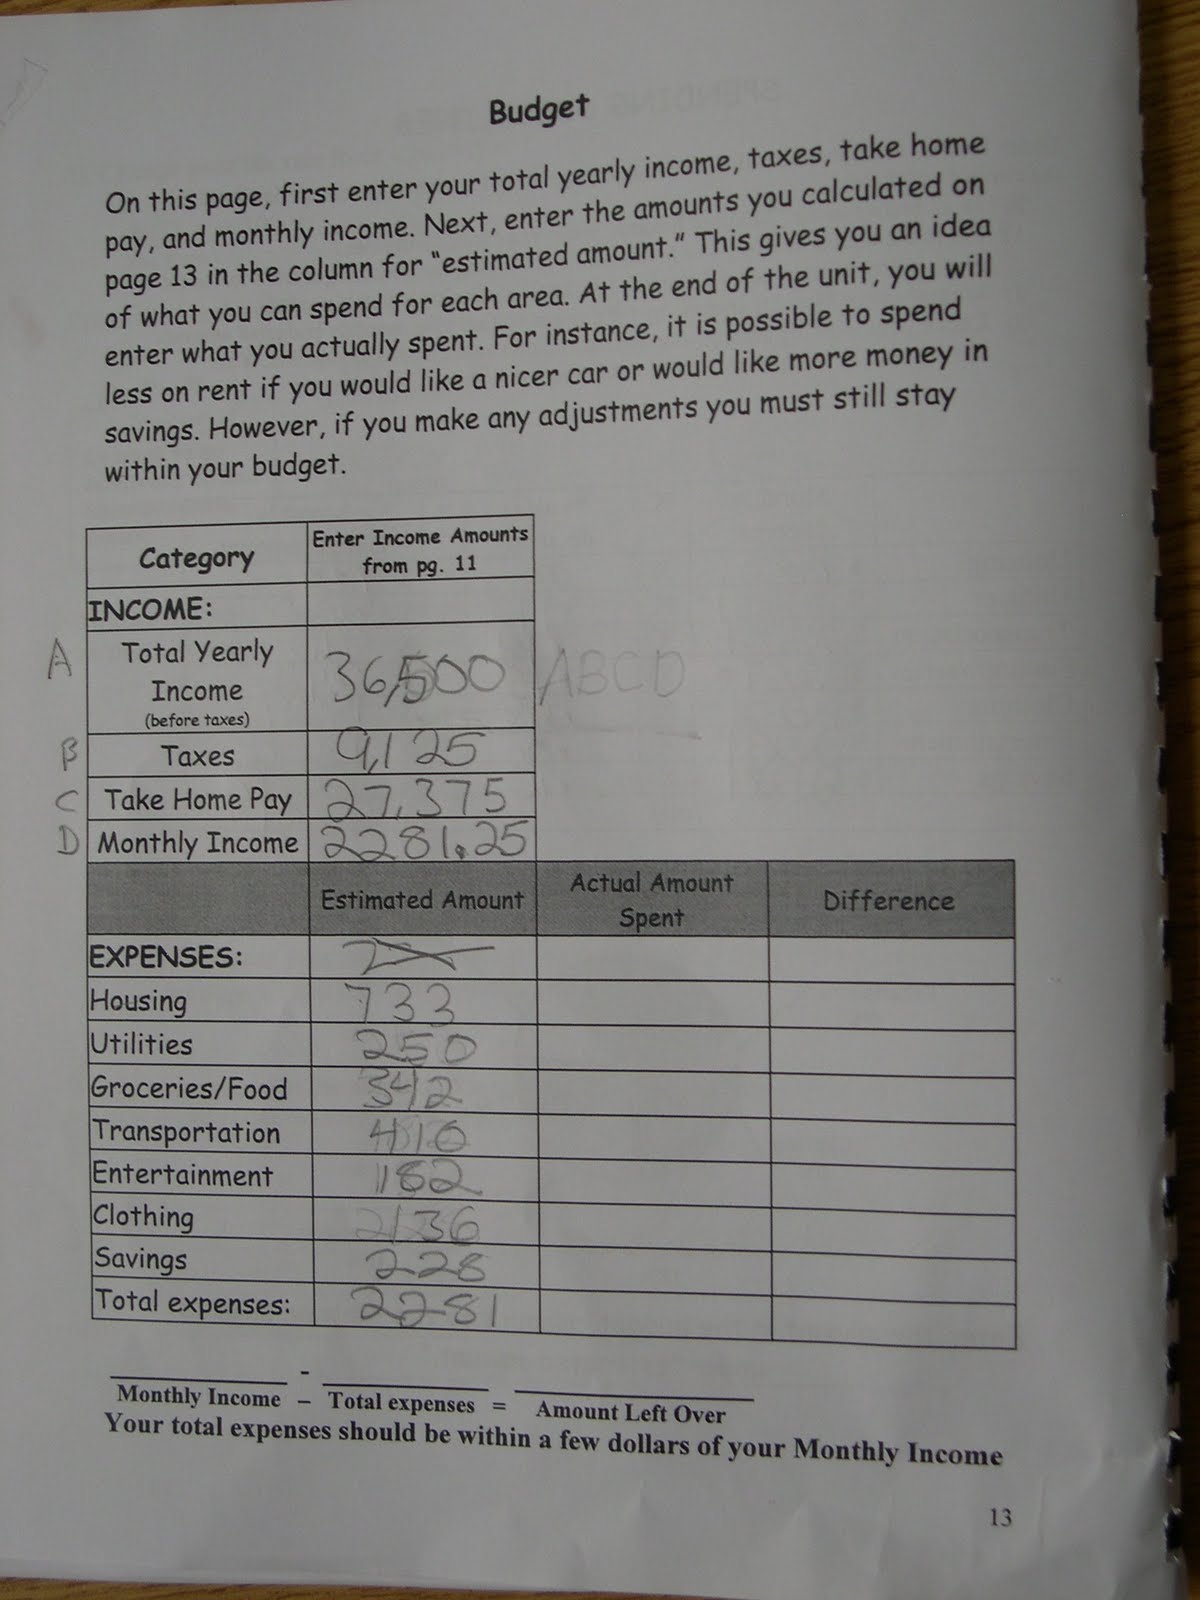 Budget
On this page, first enter your total yearly income, taxes, take home
pay, and monthly income. Next, enter the amounts you calculated on
page 13 in the column for "estimated amount." This gives you an idea
of what you can spend for each area. At the end of the unit, you will
enter what you actually spent. For instance, it is possible to spend
less on rent if you would like a nicer car or would like more money in
savings. However, if you make any adjustments you must still stay
within your budget.
Category
Enter Income Amounts
from pg. 11
INCOME:
A
Total Yearly
Income
(before taxes)
36,500
ABCD
B Taxes 9,125
C Take Home Pay 27,375
D Monthly Income 2281.25
Estimated Amount
Actual Amount
Spent
Difference
EXPENSES:
Housing 733
Utilities 250
Groceries/Food 342
Transportation 410
Entertainment 182
Clothing 136
Savings 228
Total expenses: 2281
-
Monthly Income – Total expenses = Amount Left Over
Your total expenses should be within a few dollars of your Monthly Income
13